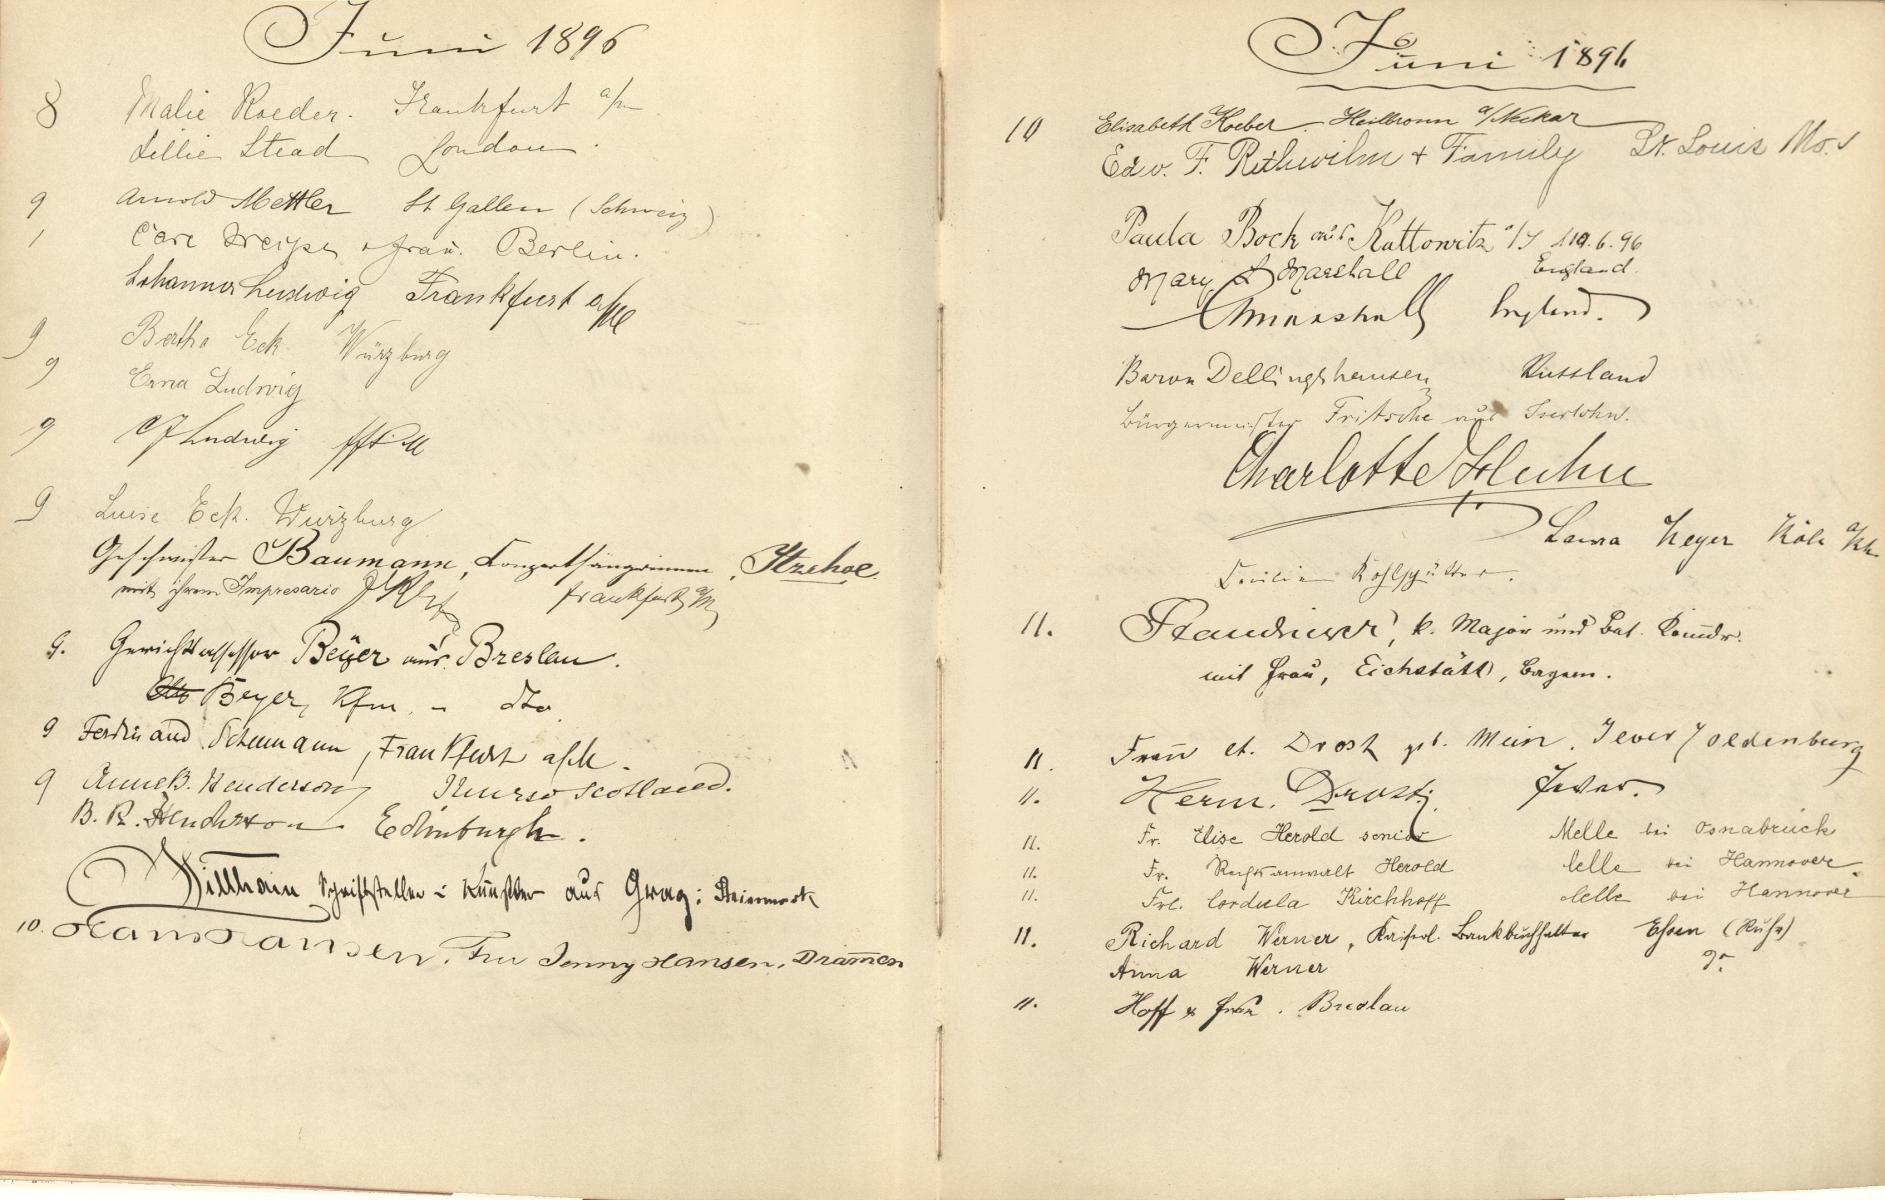 Juni 1896
8 Malie Roeder. Frankfurt a/m
Lillie Stead London.
9 Arnold Mettler St Gallen (Schweiz)
1 Carl & Frau. Berlin.
Johannes Ludwig Frankfurt a/M
9 Bertha Eck Würzburg
9 Erna Ludwig
9 CJ Ludwig fft M
9 Luise Eck. Würzburg
Geschwister Baumann, Konzertsängerinnen, Itzehoe.
mit ihrem Impresario Frankfurt a/M
9. Gerichtsassessor Beyer aus Breslau.
Otto Beyer, Kfm. - dto
9 Ferdinand Schumann, Frankfurt a/M.
9 Anne B. Henderson Scotland.
B. R. Henderson Edinburgh.
Willhain Schriftsteller u. Künstler aus Graz: Steiermark
10. Hans Hansen. Fru Jenny Hansen. Drammen
Juni 1896
10 Elisabeth Koeber. Heilbronn a/Neckar
Edw. F. Rethwilm + Family St. Louis Mo.
Paula Bock aus Kattowitz o/S 10.6.96
Mary L Marshall England.
England.
Baron Dellingshausen Russland
Bürgermeister Fritsche aus Iserlohn.
Charlotte Huhn
Laura Meyer Köln a/Rh
11. k. Major und Bat. Komdr.
mit Frau, Eichstätt, Bayern.
11. Frau et. Drost geb. Mein. Jever / Oldenburg
11. Herm. Drost, Jever.
11. Fr. Elise Herold senior Melle bei Osnabrück
11. Fr. Rechtsanwalt Herold Celle bei Hannover.
11. Frl. Cordula Kirchhoff Celle bei Hannover
11. Richard Werner, Bankbuchhalter Essen (Ruhr)
Anna Werner
11. Hoff & Frau. Breslau